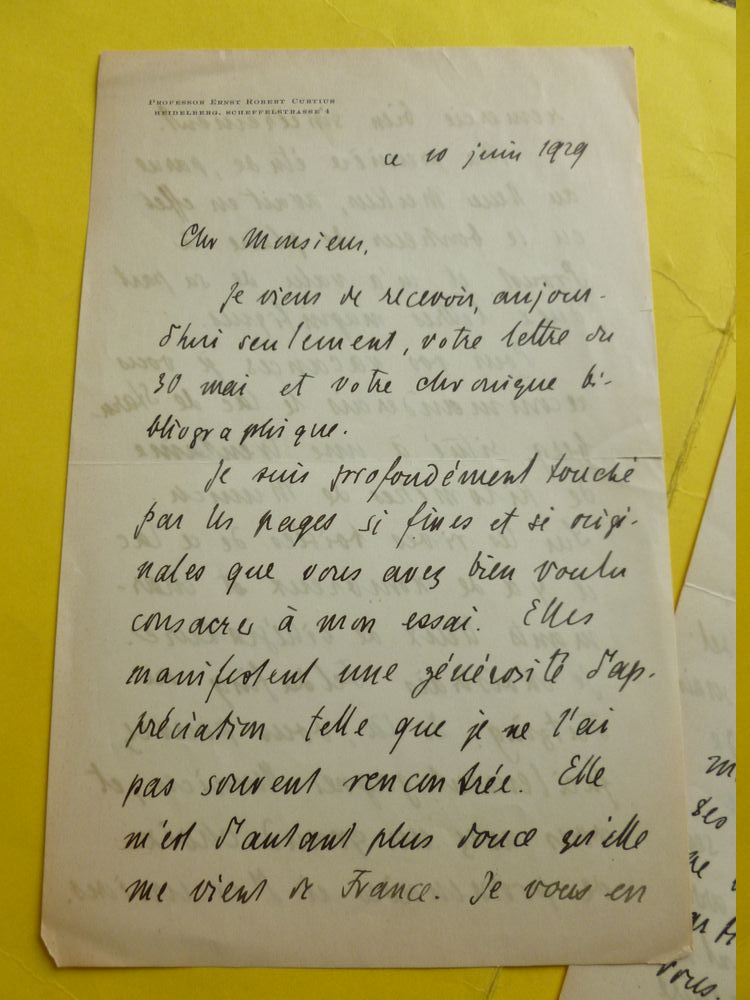 PROFESSOR ERNST ROBERT CURTIUS
HEIDELBERG, SCHEFFELSTRASSE 4
ce 10 juin 1929
Cher Monsieur,
Je viens de recevoir, aujour-
d'hui seulement, votre lettre du
30 mai et votre chronique bi-
bliographique.
Je suis profondément touché
par les pages si fines et si origi-
nales que vous avez bien voulu
consacrer à mon essai. Elles
manifestent une générosité d'ap-
préciation telle que je ne l'ai
pas souvent rencontrée. Elle
m'est d'autant plus douce qu'elle
me vient de France. Je vous en
vous.